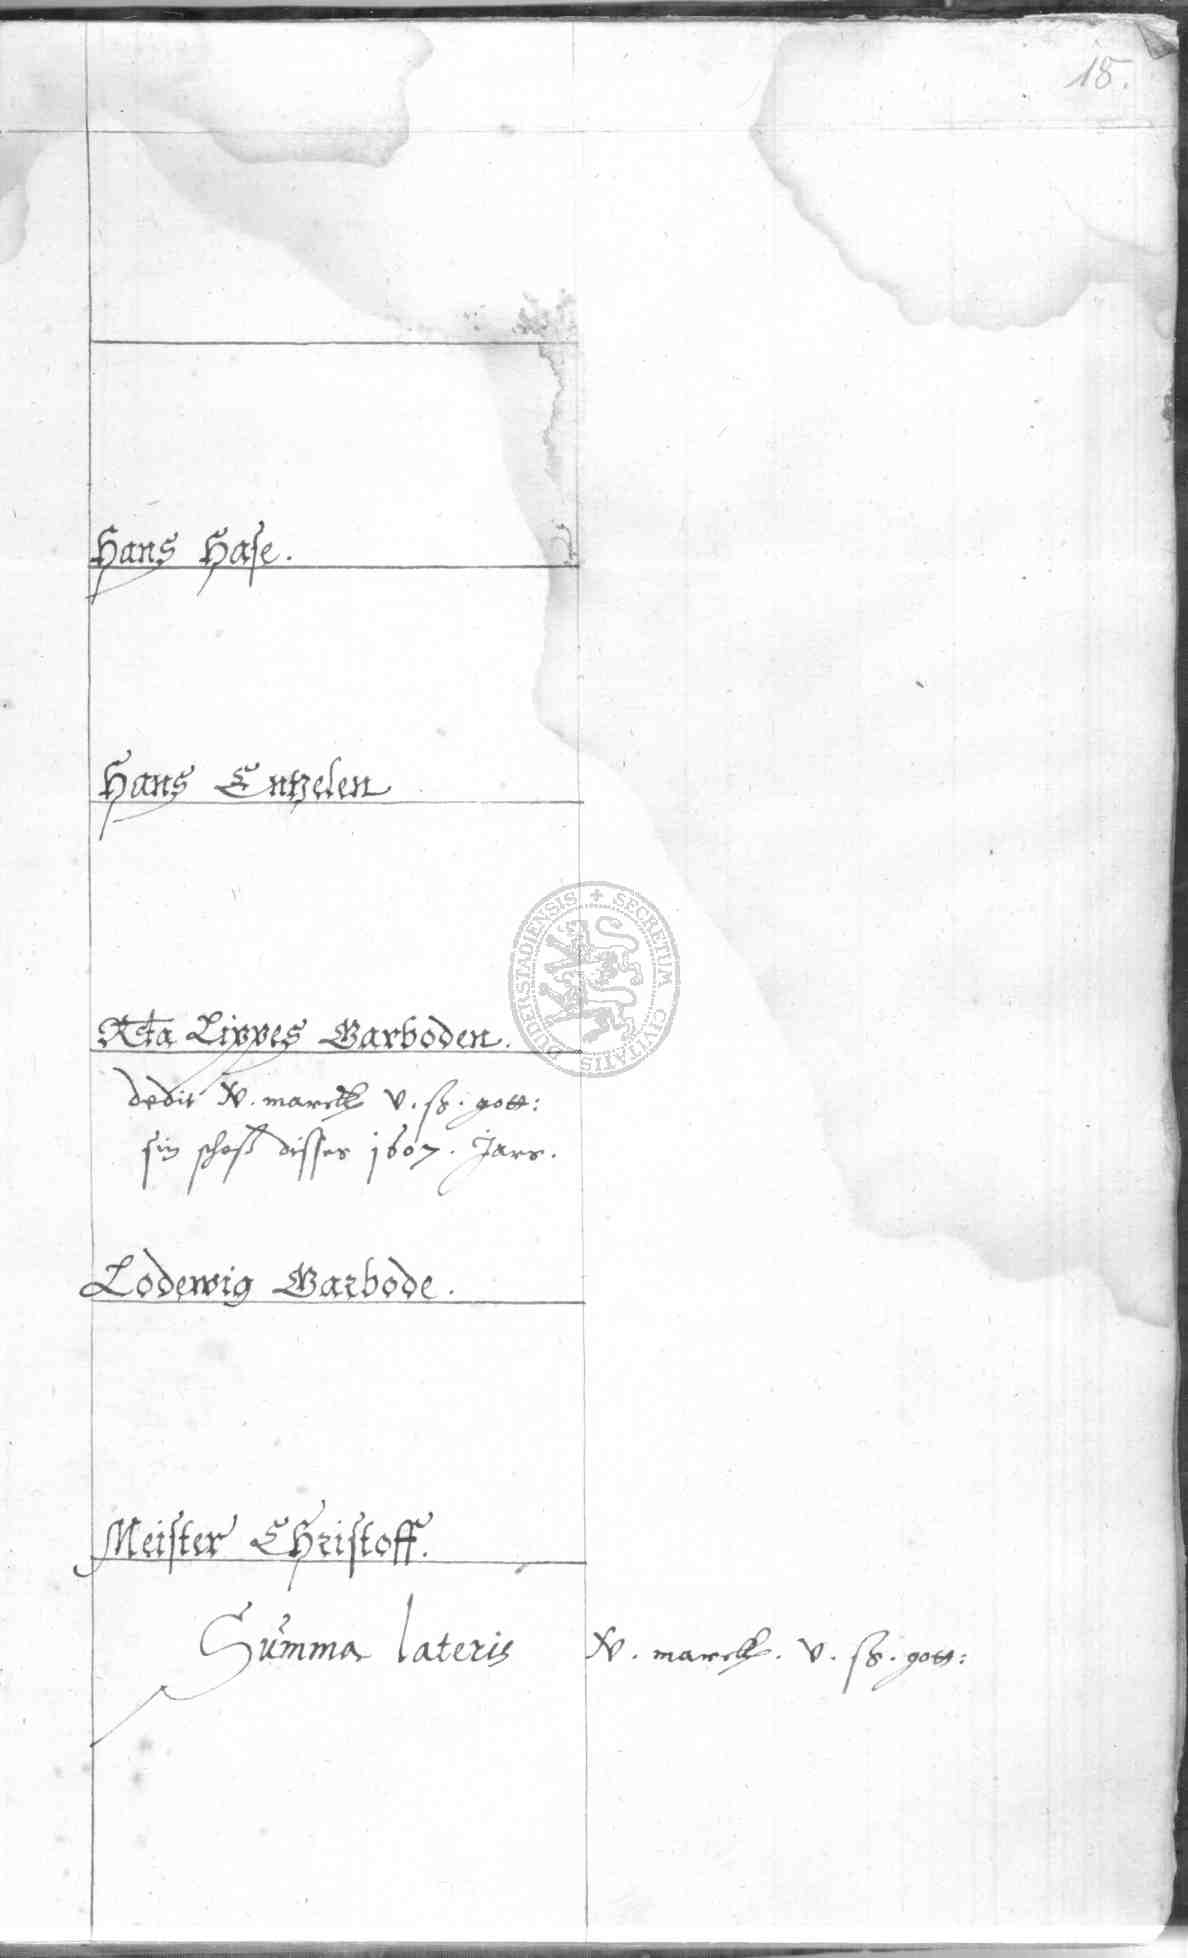 18.
Hans Hase.
Hans Entzelen
Rta Lippes Barboden.
dedit XV. marck V. ß. gott:
sin schoß disses 1607. Jars.
Lodewig Barbode.
Meister Christoff.
Summa lateris XV. marck. V. ß. gott:
SECRETUM CIVITATIS DUDERSTADIENSIS